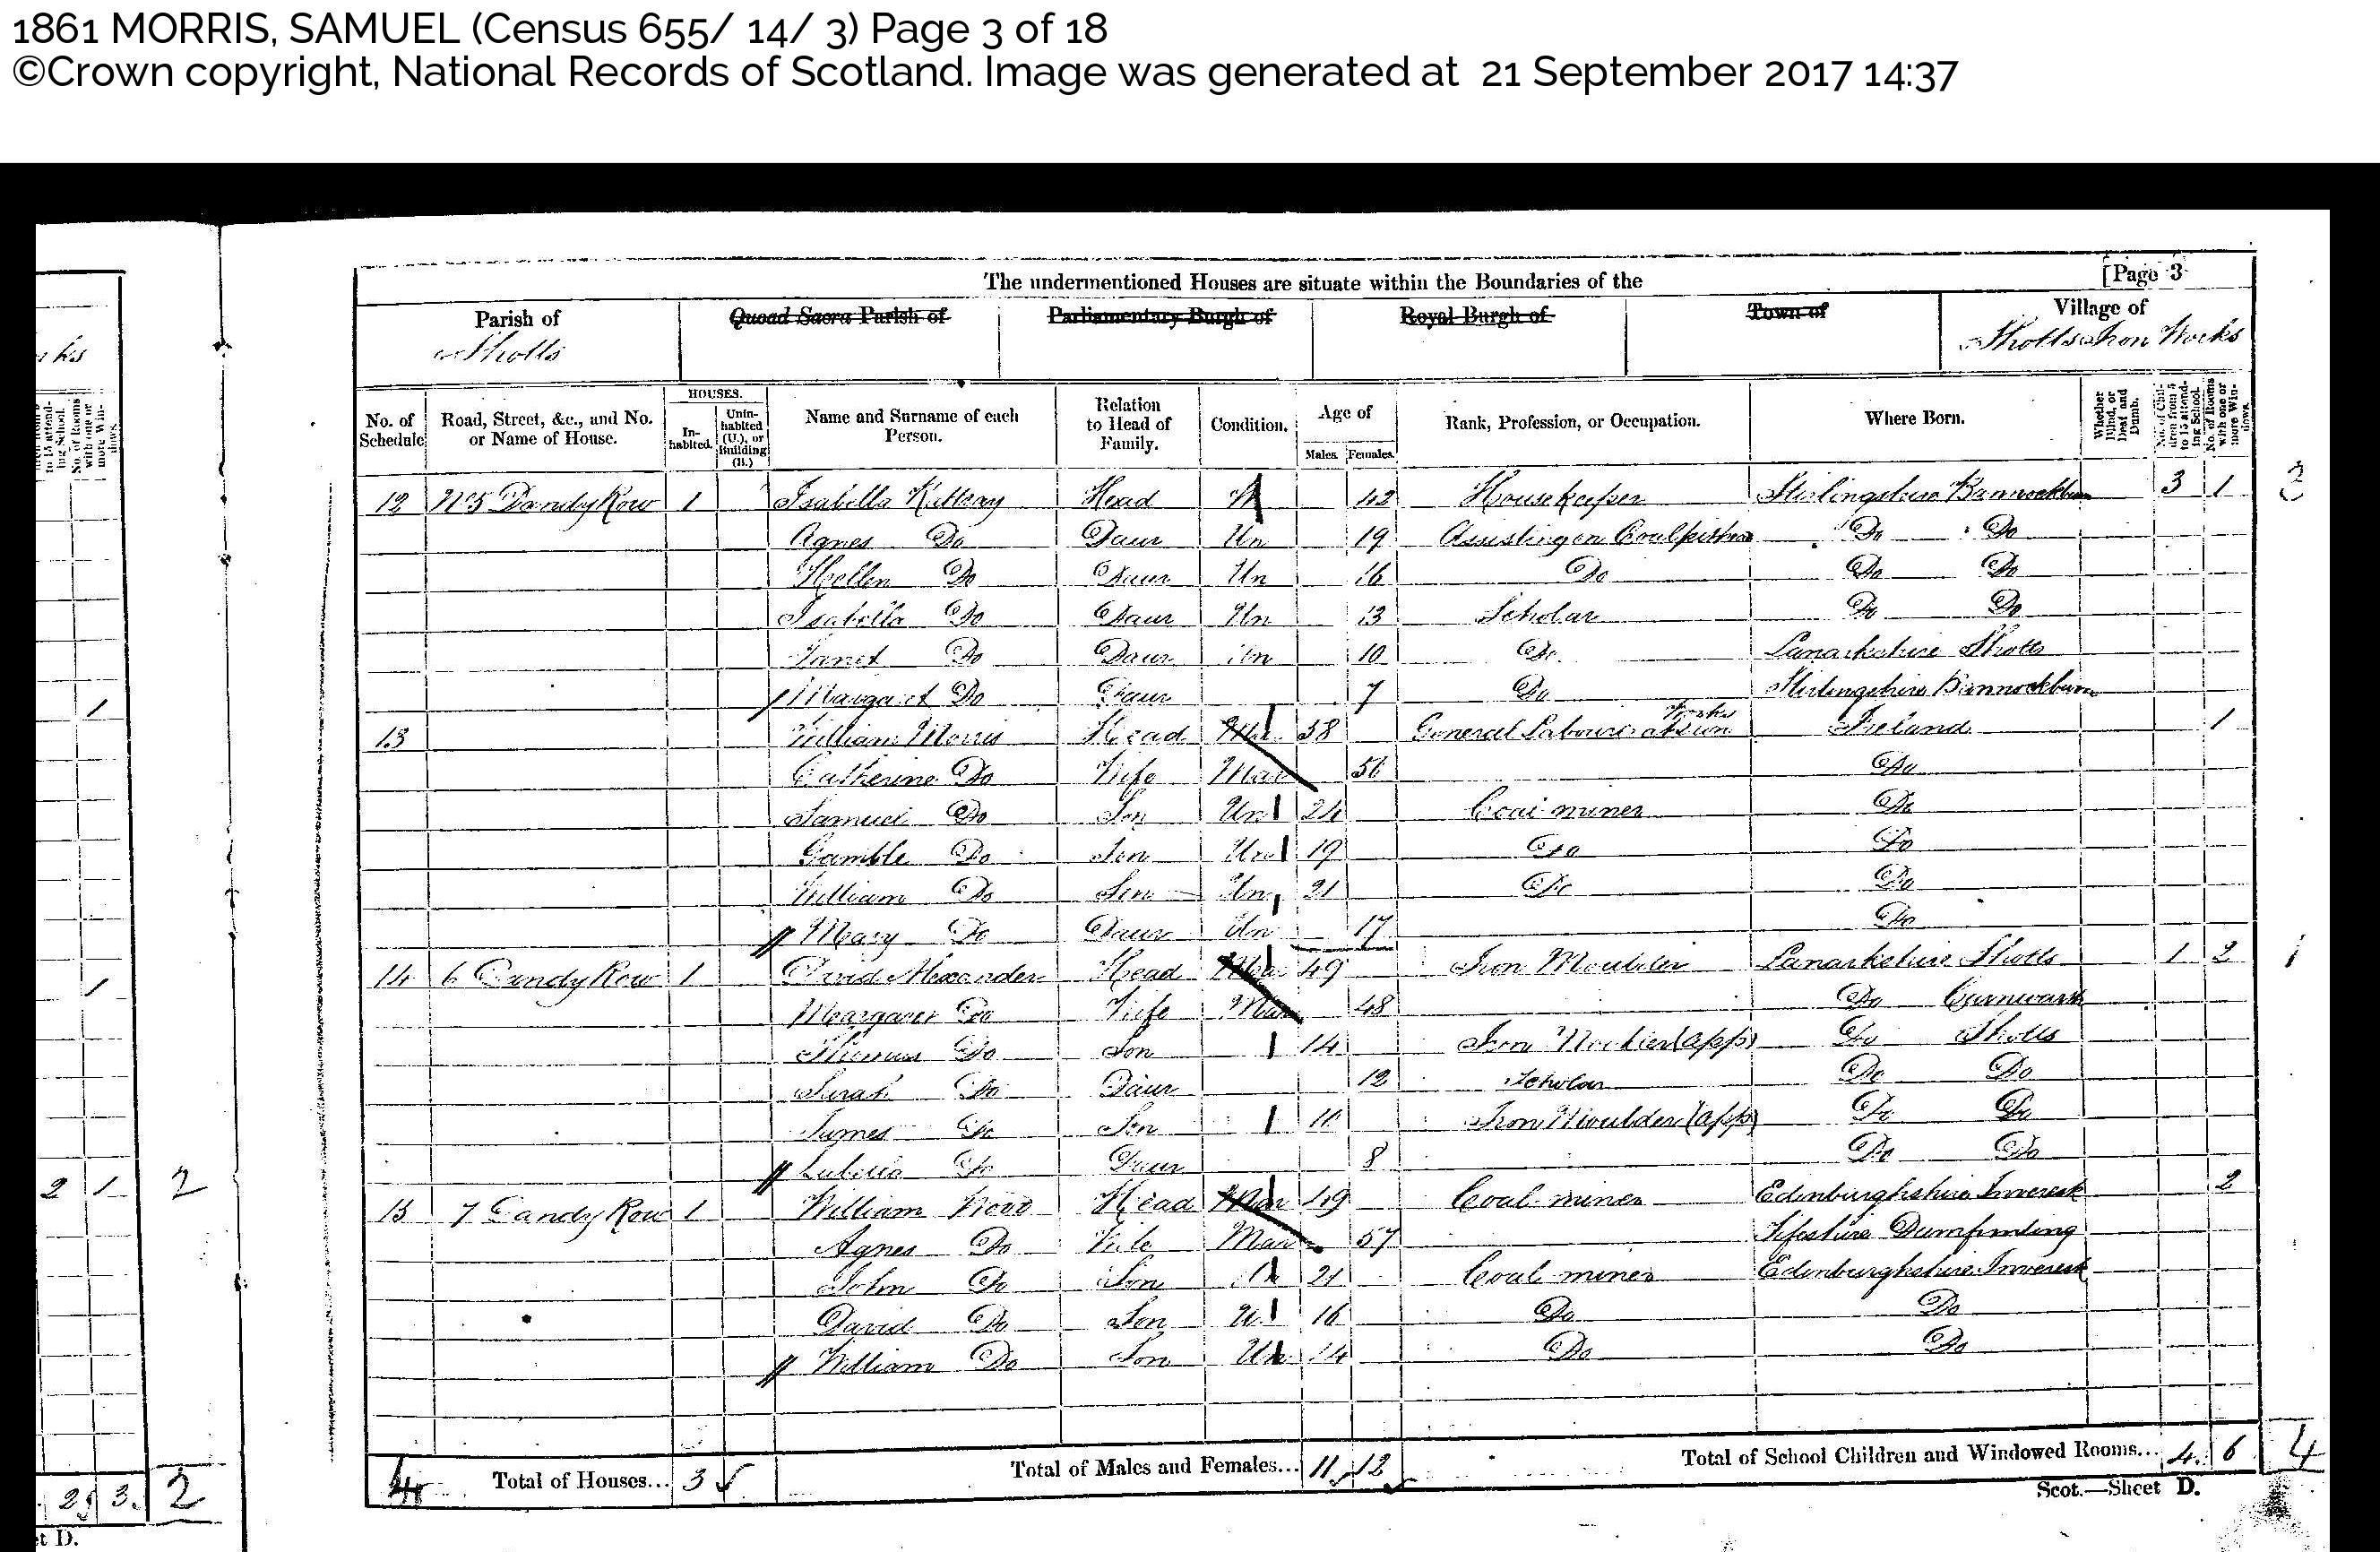 1861 MORRIS, SAMUEL (Census 655/ 14/ 3) Page 3 of 18
©Crown copyright, National Records of Scotland. Image was generated at 21 September 2017 14:37
The undermentioned Houses are situate within the Boundaries of the [Page 3
Parish of Quoad Sacra Parish of Parliamentary Burgh of Royal Burgh of Town of Village of
Shotts Shotts Iron Works
No. of Schedule Road, Street, &c., and No. or Name of House. HOUSES. Inhabited. Uninhabited (U.), or Building (B.) Name and Surname of each Person. Relation to Head of Family. Condition. Age of Males Females Rank, Profession, or Occupation. Where Born. Whether Blind, or Deaf and Dumb. No. of Children from 5 to 15 attending School. No. of Rooms with one or more Windows.
12 No 5 Dandy Row 1 Isabella Head W 42 Housekeeper Stirlingshire Bannockburn 3 1 3
Agnes Do Daur Un 19 Assisting on Do Do
Hellen Do Daur Un 16 Do Do Do
Isabella Do Daur Un 13 Scholar Do Do
Janet Do Daur Un 10 Do Lanarkshire Shotts
Margaret Do Daur 7 Do Stirlingshire Bannockburn
13 William Morris Head Mar 58 General Labourer at Iron Works Ireland 1
Catherine Do Wife Mar 56 Do
Samuel Do Son Un 24 Coal miner Do
Gamble Do Son Un 19 Do Do
William Do Son Un 21 Do Do
Mary Do Daur Un 17 Do
14 6 Dandy Row 1 David Alexander Head Mar 49 Iron Moulder Lanarkshire Shotts 1 2 1
Margaret Do Wife Mar 48 Do Carnwath
Thomas Do Son 14 Iron Moulder (app) Do Shotts
Sarah Do Daur 12 Scholar Do Do
James Do Son 10 Iron Moulder (app) Do Do
Do Daur 8 Do Do
15 7 Dandy Row 1 William Head Mar 49 Coal miner Edinburghshire Inveresk 2
Agnes Do Wife Mar 57 Fifeshire Dumfirmling
John Do Son Un 21 Coal miner Edinburghshire Inveresk
David Do Son U 16 Do Do
William Do Son Un 14 Do Do
4 Total of Houses... 3 Total of Males and Females... 11 12 Total of School Children and Windowed Rooms... 4 6 4
Scot.—Sheet D.
2 1 2
2 3 2
et D.